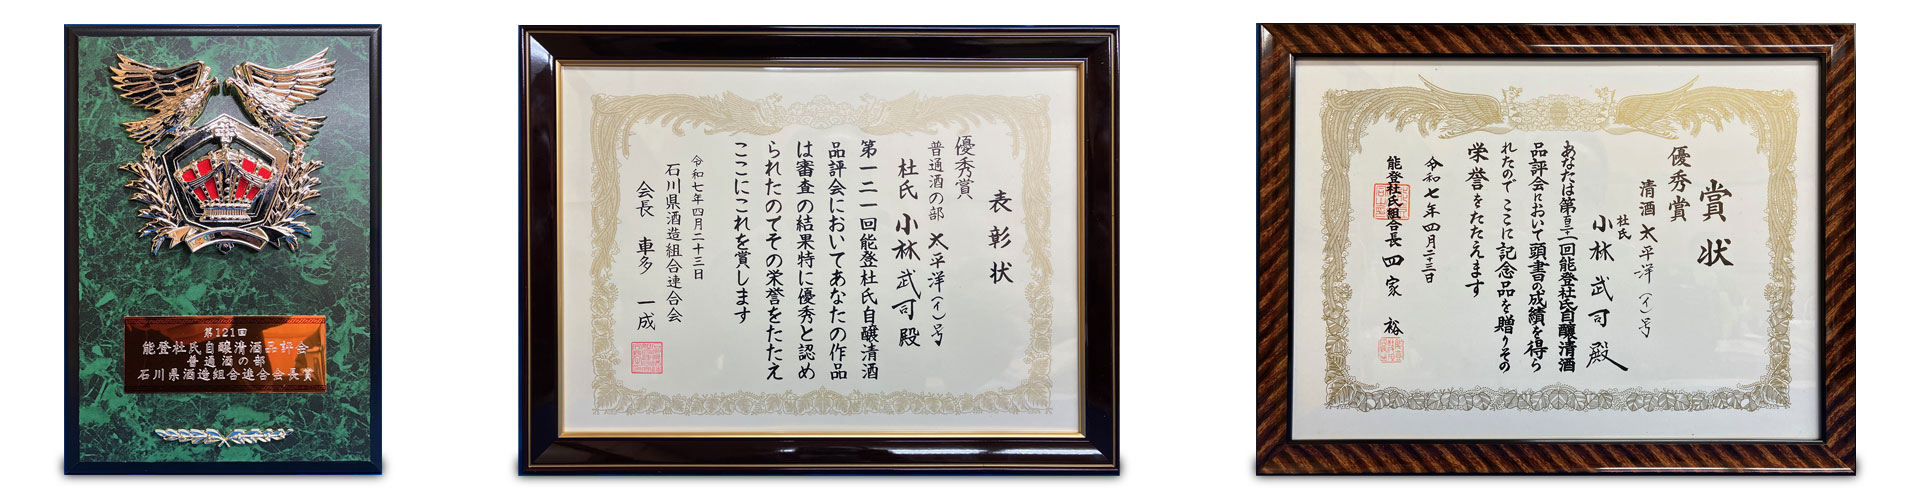 第121回
能登杜氏自醸清酒品評会
普通酒の部
石川県酒造組合連合会会長賞
表彰状
優秀賞
普通酒の部 太平洋(イ)号
杜氏 小林武司殿
第一二一回能登杜氏自醸清酒
品評会においてあなたの作品
は審査の結果特に優秀と認め
られたのでその栄誉をたたえ
ここにこれを賞します
令和七年四月二十三日
石川県酒造組合連合会
会長 車多 一成
賞状
優秀賞
清酒 太平洋(イ)号
杜氏
小林武司殿
あなたは第百二十一回能登杜氏自醸清酒
品評会において頭書の成績を得ら
れたのでここに記念品を贈りその
栄誉をたたえます
令和七年四月二十三日
能登杜氏組合長 四家 裕